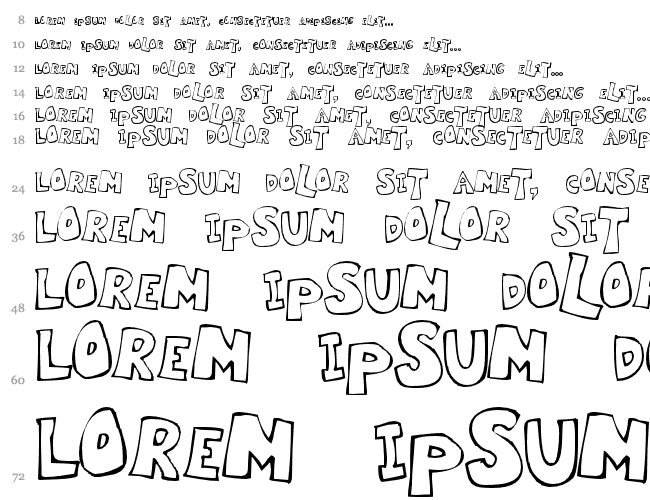 8 LOREM IPSUM DOLOR SIT AMET, CONSECTETUER ADIPISCING ELIT...
10 LOREM IPSUM DOLOR SIT AMET, CONSECTETUER ADIPISCING ELIT...
12 LOREM IPSUM DOLOR SIT AMET, CONSECTETUER ADIPISCING ELIT...
14 LOREM IPSUM DOLOR SIT AMET, CONSECTETUER ADIPISCING ELIT...
16 LOREM IPSUM DOLOR SIT AMET, CONSECTETUER ADIPISCING
18 LOREM IPSUM DOLOR SIT AMET, CONSECTETUER ADIP
24 LOREM IPSUM DOLOR SIT AMET, CONSE
36 LOREM IPSUM DOLOR SIT
48 LOREM IPSUM DOLOR
60 LOREM IPSUM DO
72 LOREM IPSUM